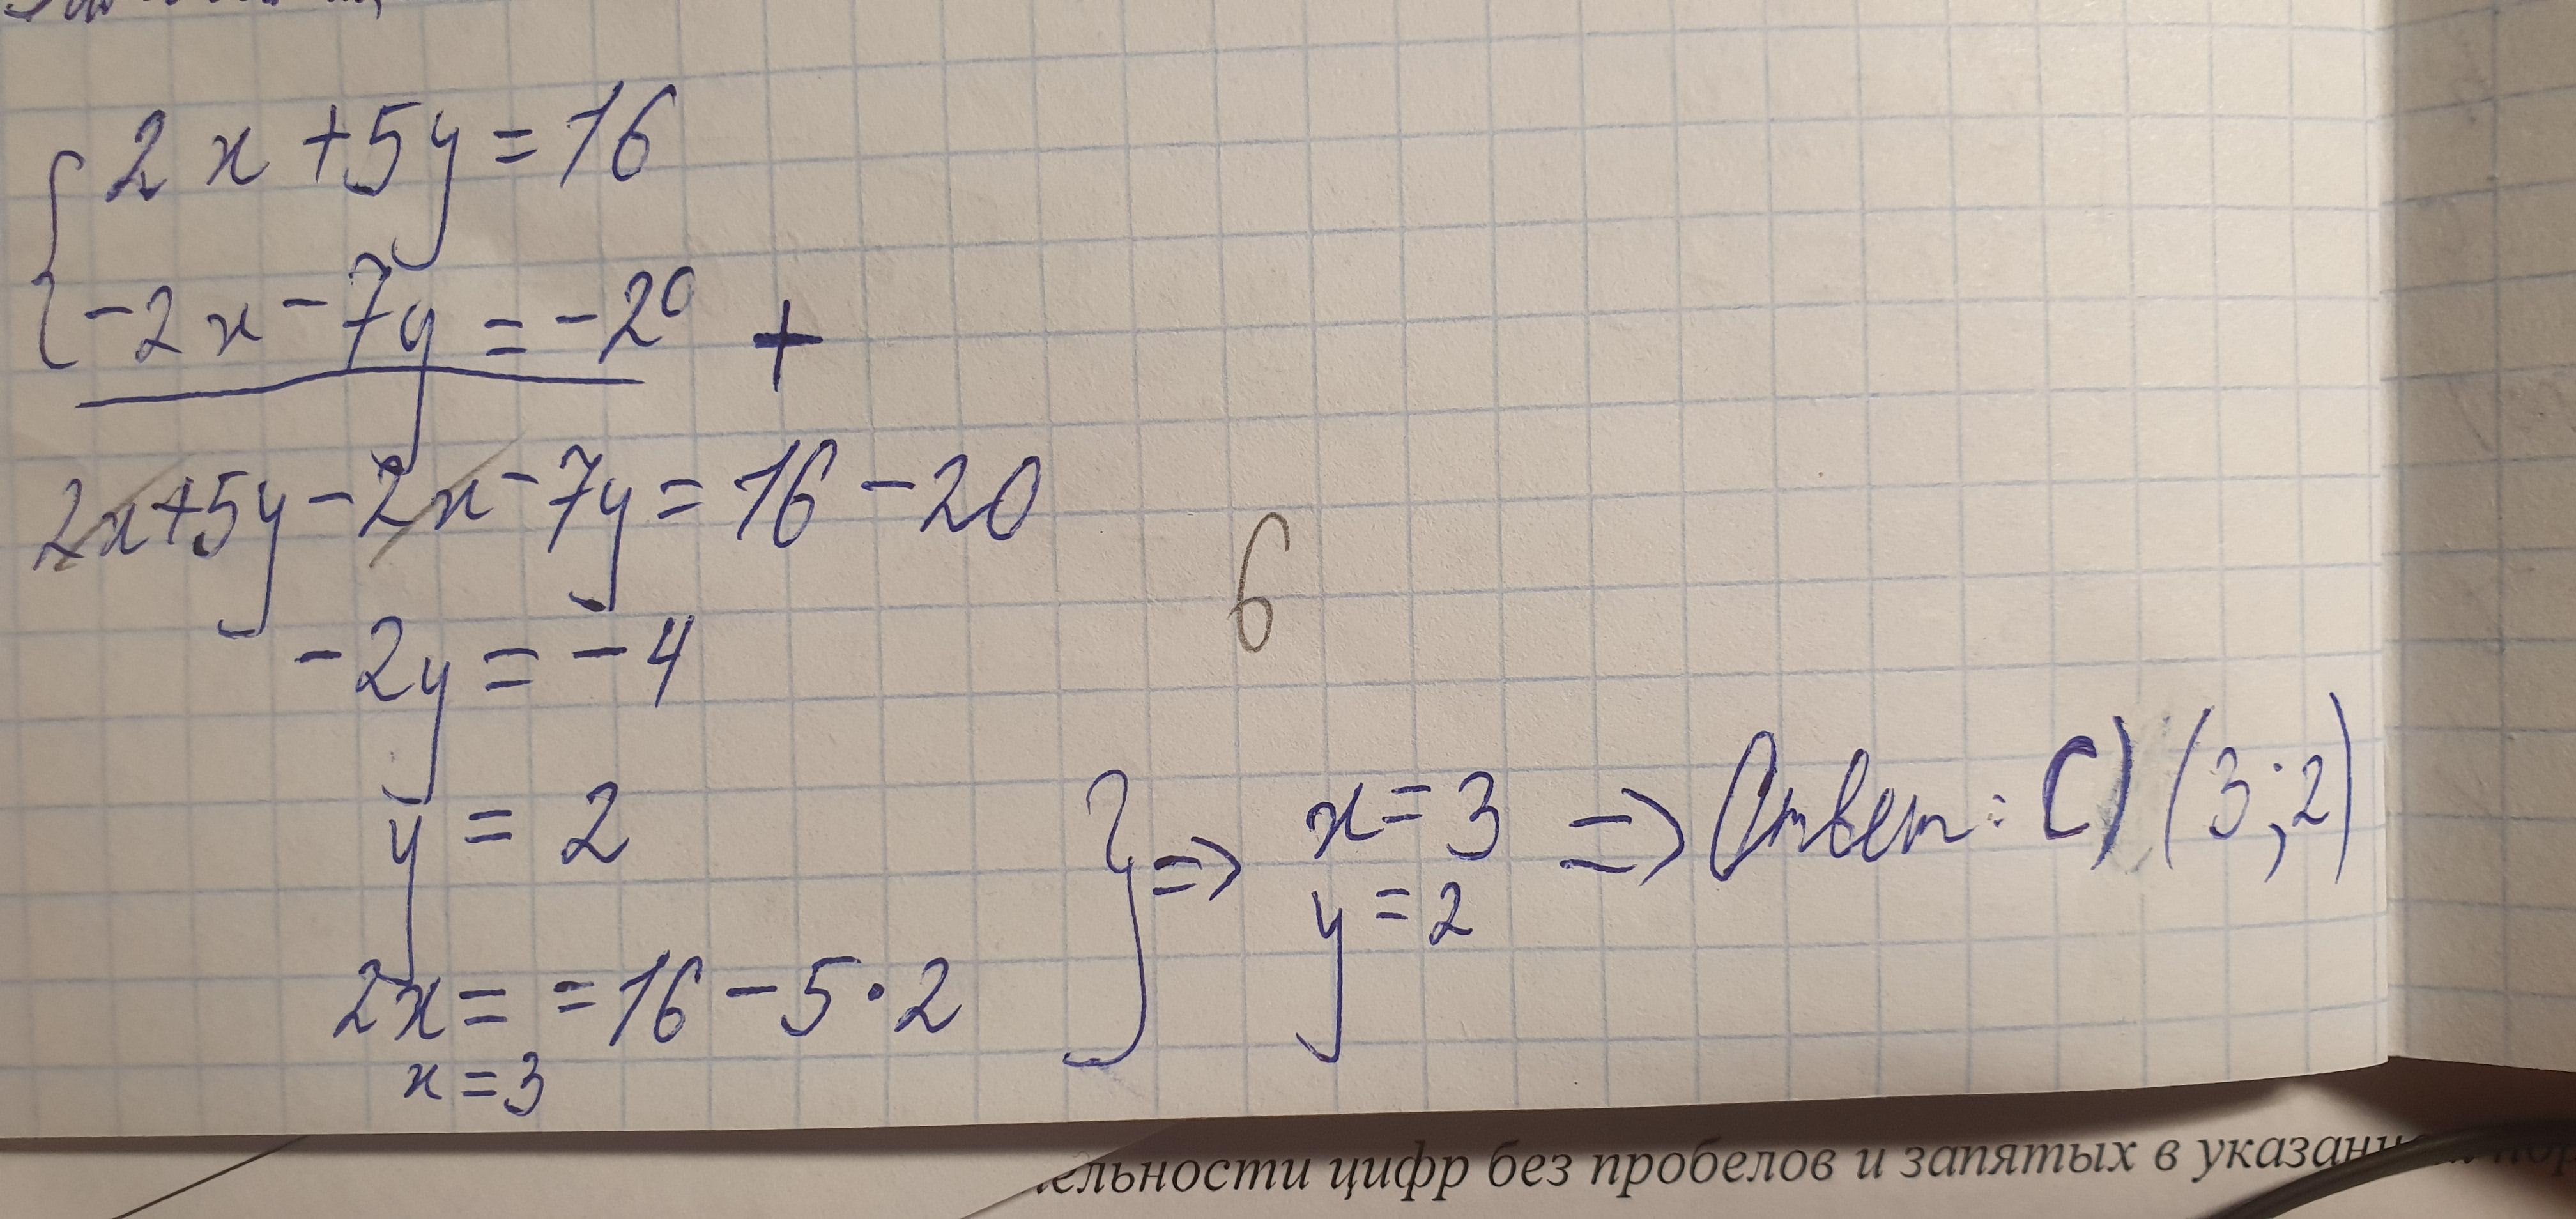 2x+5y=16
-2x-7y=-20 +
2x+5y-2x-7y=16-20
6
-2y=-4
y=2
2x= =16-5·2
x=3
} => x=3
y=2
=> Ответ: C) (3;2)
ельности цифр без пробелов и запятых в